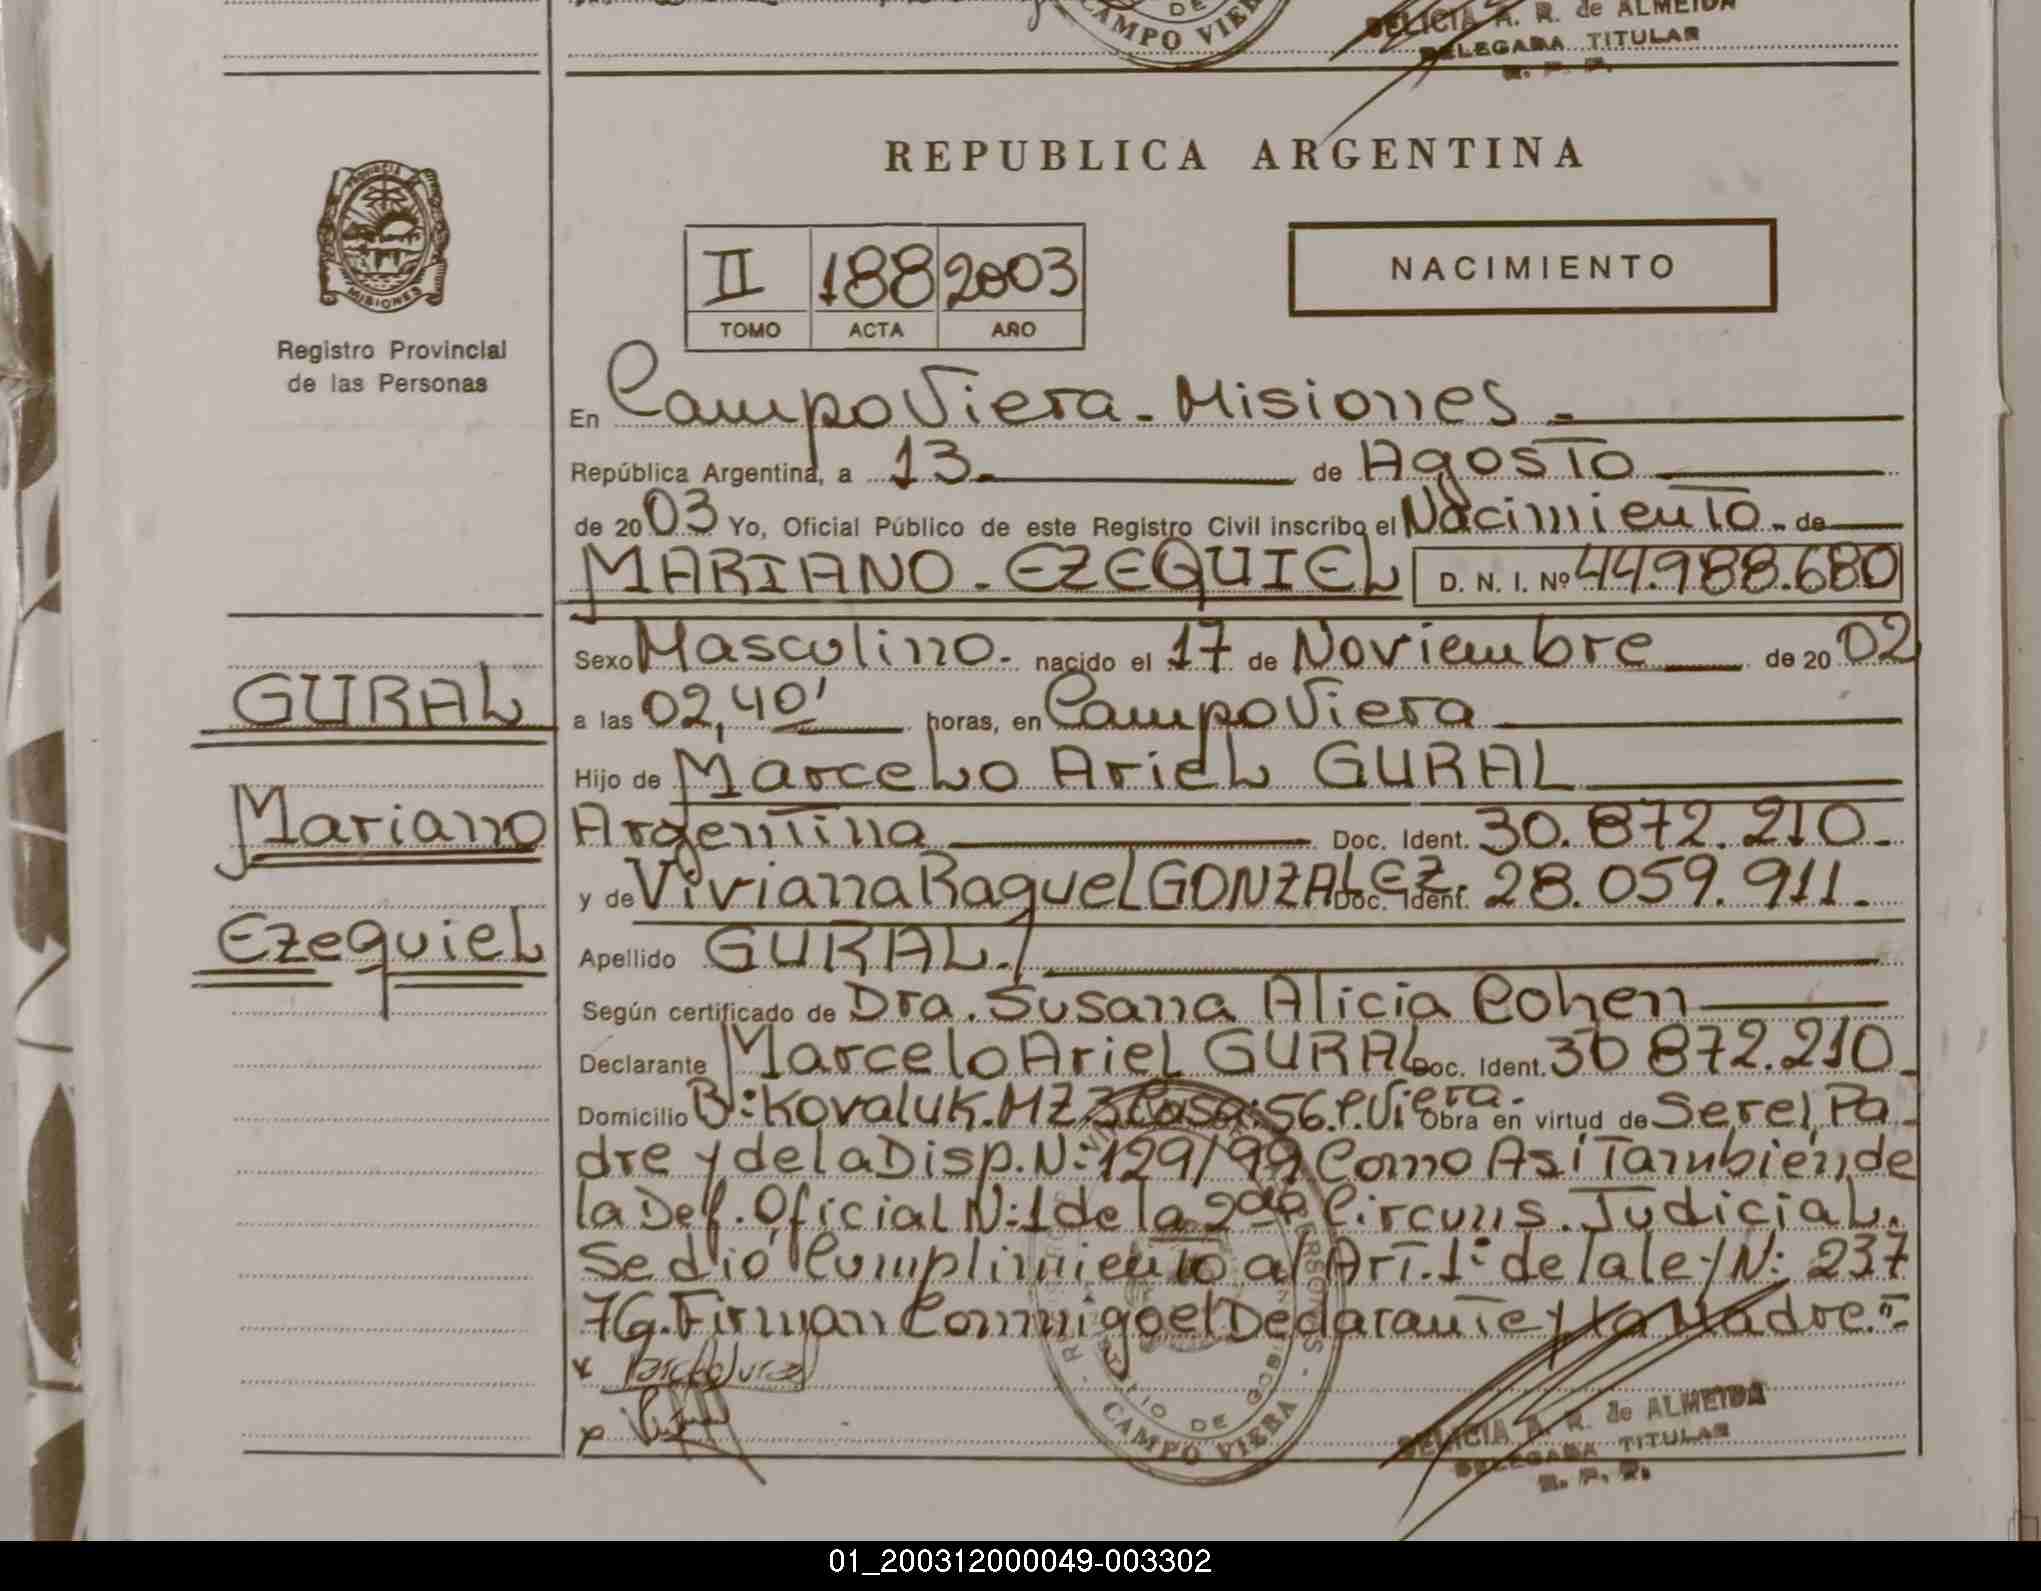 CAMPO VIERA
DELICIA A. R. de ALMEIDA
DELEGADA TITULAR
R. P. P.
REPUBLICA ARGENTINA
PROVINCIA DE
MISIONES
Registro Provincial
de las Personas
II 188 2003
TOMO ACTA AÑO
NACIMIENTO
En Campo Viera - Misiones -
República Argentina, a 13 de Agosto
de 2003 Yo, Oficial Público de este Registro Civil inscribo el Nacimiento - de
MARIANO - EZEQUIEL D. N. I. Nº 44.988.680
Sexo Masculino - nacido el 17 de Noviembre de 2002
GURAL
a las 02,40' horas, en Campo Viera
Hijo de Marcelo Ariel GURAL
Mariano
Argentina Doc. Ident. 30.872.210.
y de Viviana Raquel GONZALEZ. Doc. Ident. 28.059.911.
Ezequiel
Apellido GURAL./
Según certificado de Dra. Susana Alicia Cohen
Declarante Marcelo Ariel GURAL Doc. Ident. 30 872.210.
Domicilio B: Kovaluk. MZ 3 Casa: 56. C. Viera. Obra en virtud de Ser el Pa-
dre y de la Disp. N: 129/99 Como Así Tambien de
la Def. Oficial N: 1 de la 2da Circuns. Judicial.
Se dió Cumplimiento al Art. 1: de la ley N: 237
76. Firman Conmigo el Declarante y La Madre."-
x
x
CAMPO VIERA
DELICIA A. R. de ALMEIDA
DELEGADA TITULAR
R. P. P.
01_200312000049-003302